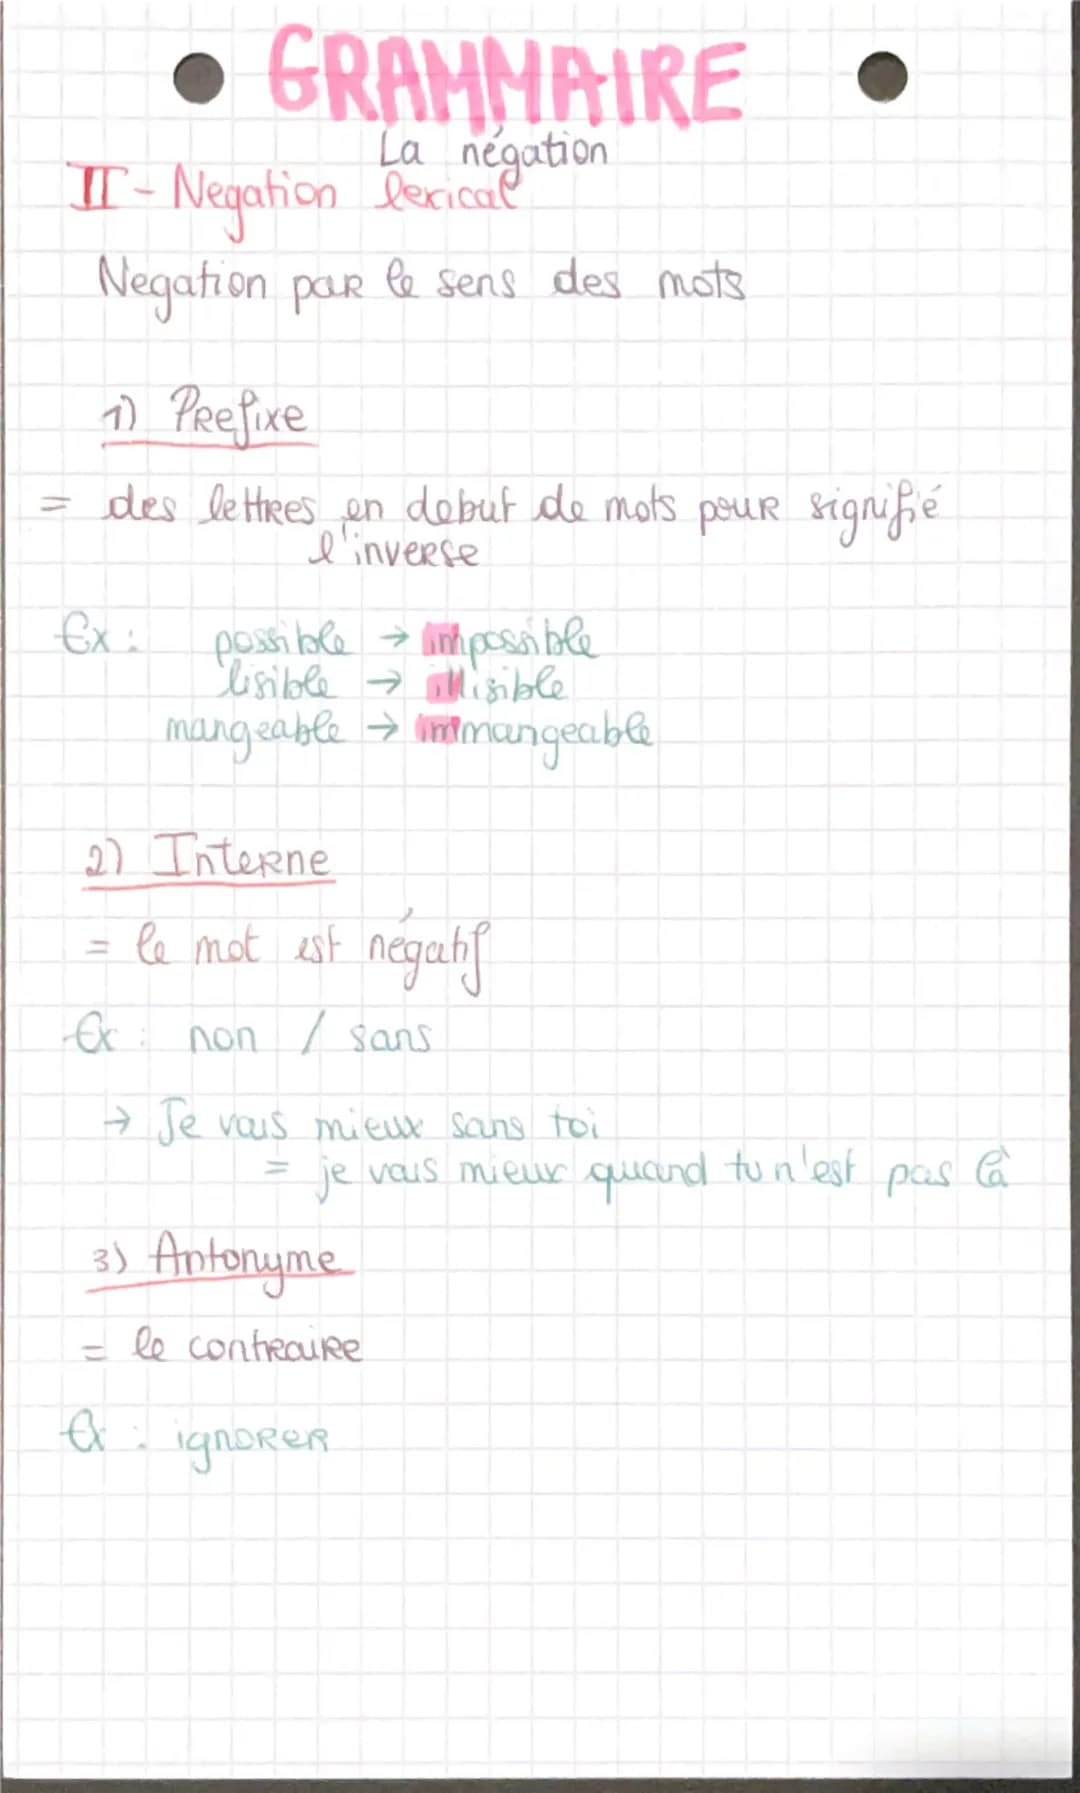 GRAMMAIRE
La négation
II - Negation lexical
Negation par le sens des mots
1) Prefixe
= des lettres en debut de mots pour signifié
l'inverse
Ex : possible → impossible
lisible → illisible
mangeable → immangeable
2) Interne
= le mot est négatif
Ex : non / sans
→ Je vais mieux sans toi
= je vais mieux quand tu n'est pas là
3) Antonyme
= le contraire
Ex : ignorer